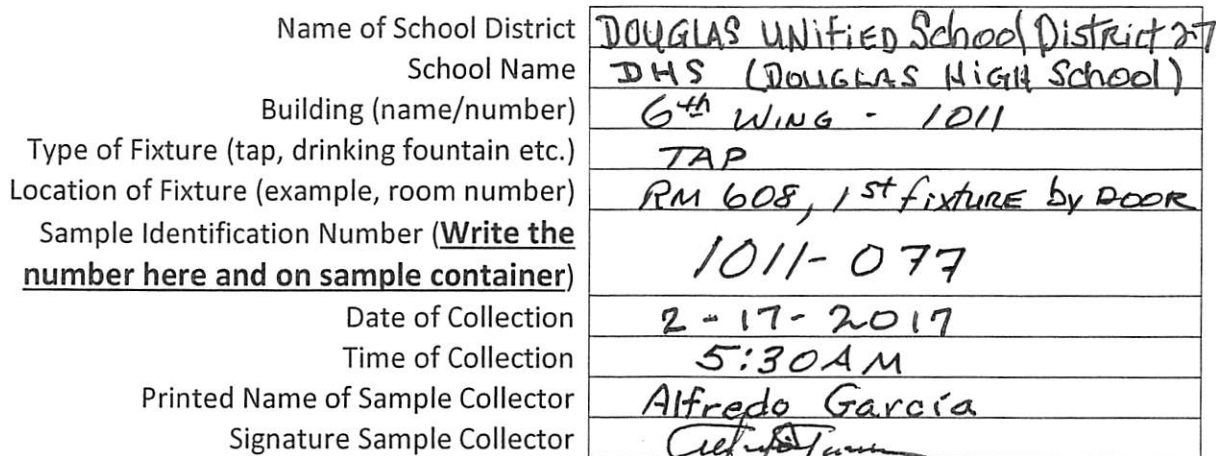 Name of School District DOUGLAS UNiFiED School District 27
School Name DHS (DOUGLAS HiGH School)
Building (name/number) 6th WING - 1011
Type of Fixture (tap, drinking fountain etc.) TAP
Location of Fixture (example, room number) RM 608, 1st fixTURE by DOOR
Sample Identification Number (Write the
number here and on sample container) 1011-077
Date of Collection 2-17-2017
Time of Collection 5:30AM
Printed Name of Sample Collector Alfredo García
Signature Sample Collector